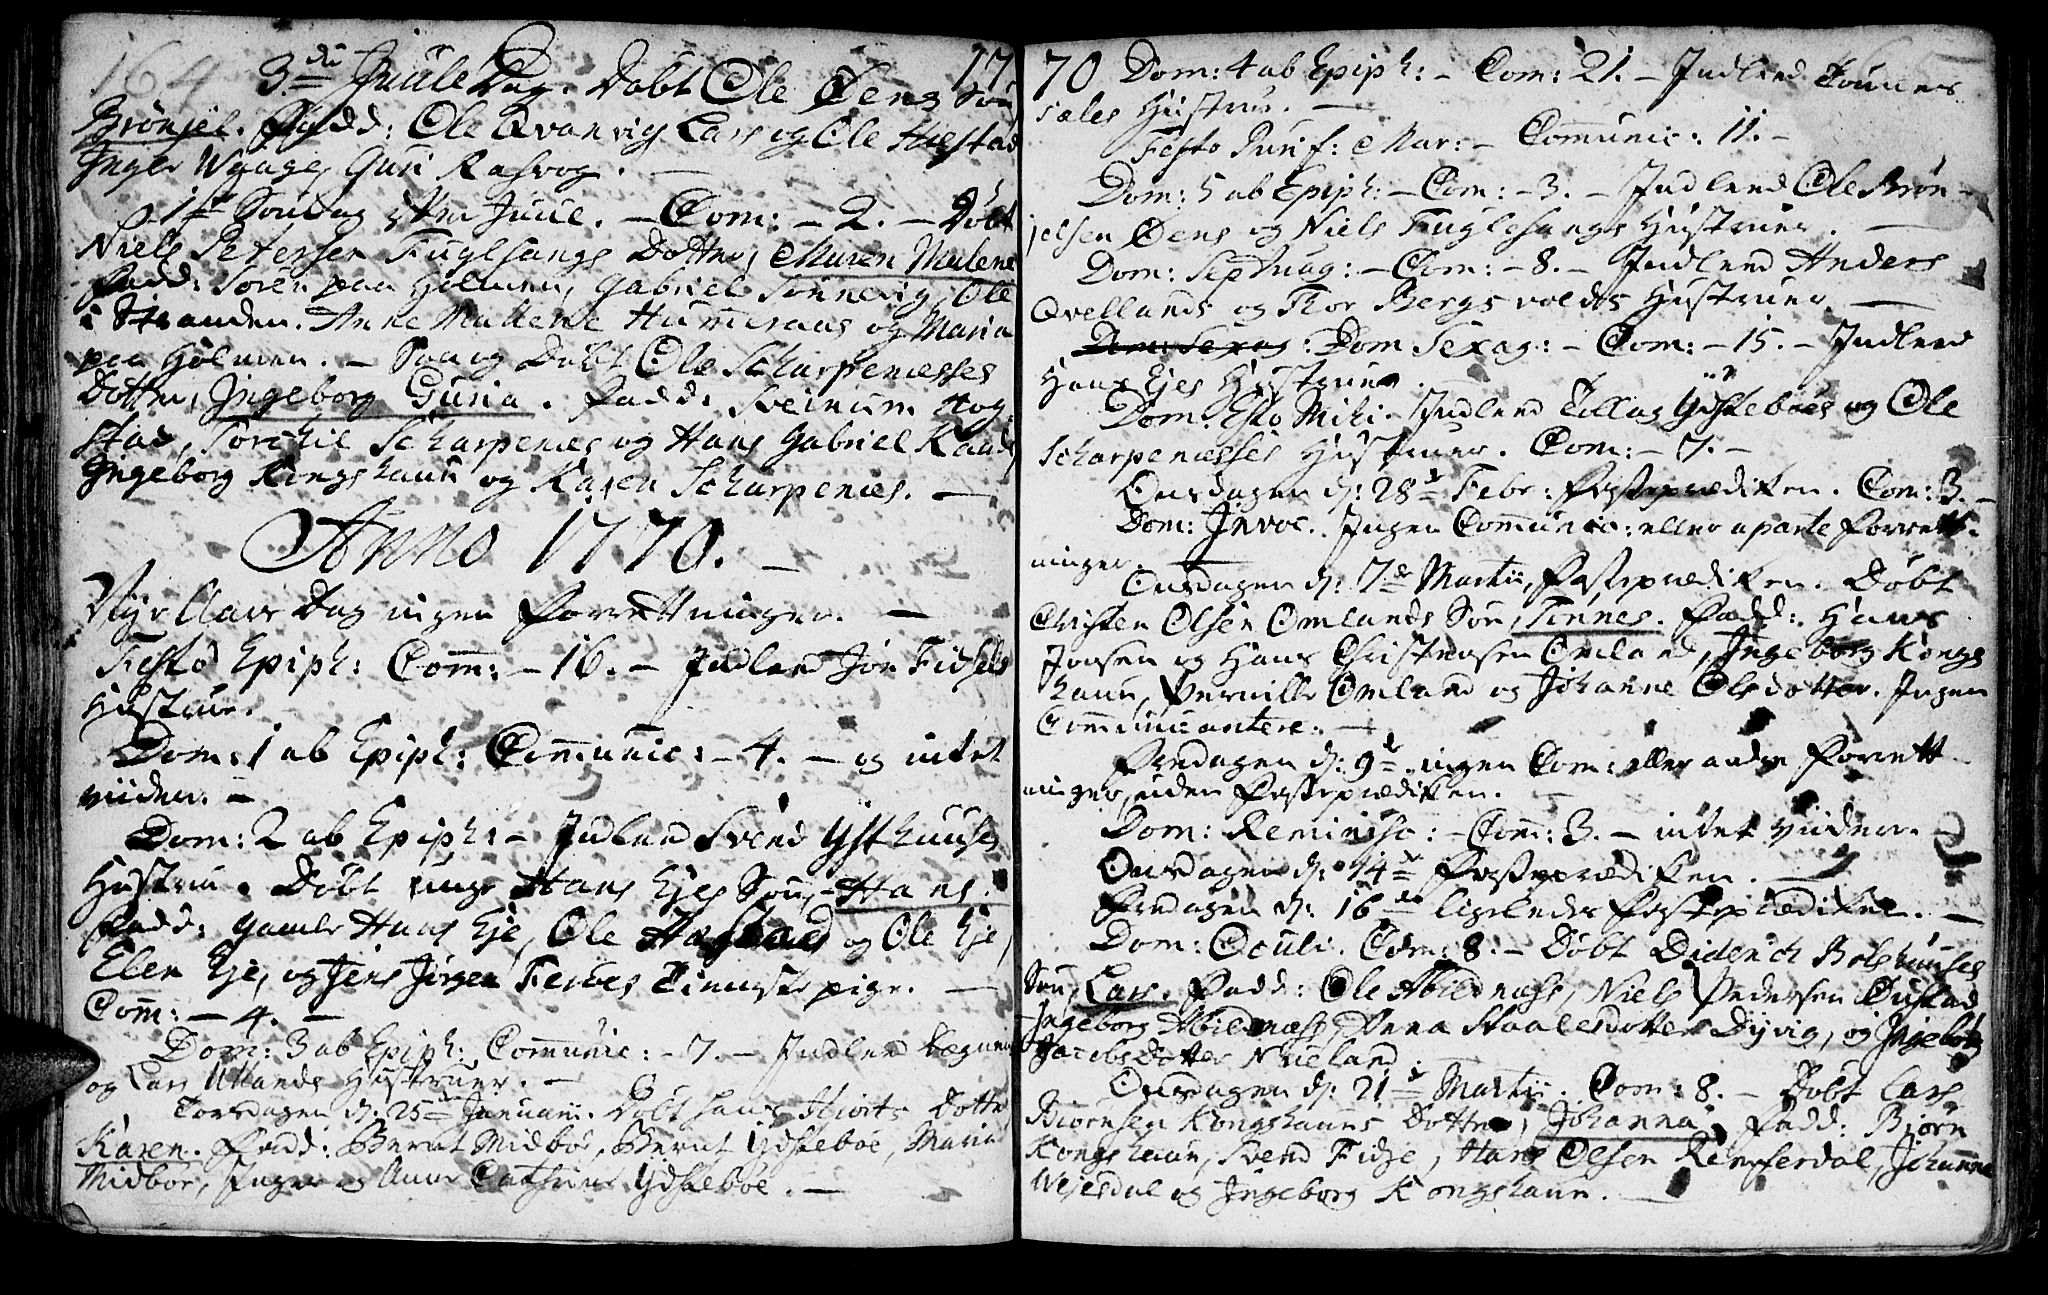 164
17
3die Juule Dag. Døbt Ole Øens Søn
Brønjel. Fadd: Ole Qvanvig Lars og Ole Hiestad
Inger Waage, Guri Rasvog.
1ste Søndag efter Juul. – Com: – 2. – Døbt
Niels Petersen Fuglsangs Dotter, Maren Malene
Fadd: Søren paa Holmen, Gabriel Sonnevig, Ole
i Stranden. Anne Mallene Hummeraas og Maria
paa Holmen. – Saa og Døbt Ole Scharpenæsses
Dotter, Ingeborg Guria. Fadd: Sveinum Hog
stad, Torchil Scharpenæs og Hans Gabriel
Ingeborg Kongshaun og Karen Scharpenæs. –
Anno 1770. –
Nyt Aars Dag ingen Forrettninger. –
Festo Epiph: Com: – 16. – Indled Jon Fidsels
Hustrue.
Dom: 1 ab Epiph: Communic: – 4. – og intet
viider. –
Dom: 2 ab Epiph: – Indled Svend Ysthuuses
Hustru. Døbt unge Hans Ejes Søn, Hans.
Fadd: gamle Hans Eje, Ole og Ole Eje,
Elen Eje, og Jens Jørgen Feroes Tienneste pige. –
Com: – 4. –
Dom: 3 ab Epiph: Communic: – 7. – Indled
og Lars Ullands Hustruer. –
Torsdagen d: 25de Januarii. Døbt Hans Hiorts Dotter
Karen. Fadd: Bernt Midboe, Bernt Ydstebøe, Maria
Midboe, Inger og Anne Cathrine Ydstebøe. –
70 Dom: 4 ab Epiph: – Com: 21. – Indled Tønnes
sales Hustrue. –
Festo Purif: Mar: – Communic: 11. –
Dom: 5 ab Epiph: – Com: – 3. – Indled Ole Brøn-
jelsen Øens og Niels Fuglesangs Hustruer. –
Dom: Septuag: – Com: – 8. – Indled Anders
Qvellands og Thor Bergsvolds Hustruer. –
Dom: Sexag: Dom: Sexag: – Com: – 15. – Indled
Hans Ejes Hustrue.
Dom: Esto Mihi. Indled Tollag Ydstebøes og Ole
Scharpenæsses Hustruer. Com: – 7. –
Onsdagen d: 28de Febr: Fasteprædiken. Com: 3. –
Dom: Invoc. Ingen Communic: eller aparte Forrett-
ninger. –
Onsdagen d: 7de Martii, Fasteprædiken. Døbt
Christen Olsen Omlands Søn, Tønnes. Fadd: Hans
Joensen og Hans Christensen Omland, Ingeborg Kongs
haun, Pernille Omland og Johanne Olsdotter. Ingen
Communicantere. –
Fredagen d: 9de ingen Com: eller andre Forrett-
ninger, uden Fasteprædiken. –
Dom: Reminisc: – Com: 3. – intet viider. –
Onsdagen d: 14de Fasteprædiken. –
Fredagen d: 16de ligeledes Fasteprædiken. –
Dom: Oculi. Com: 8. – Døbt Diderich Bolshuuses
Søn, Lars. Fadd: Ole Abildnæss, Niels Pedersen Øustad
Ingeborg Abildnæss, Anna Staalesdotter Dyvig, og Ingeborg
Jacobs Dotter Nueland.
Onsdagen d: 21de Martii. Com: 8. – Døbt Lars
Biørnsen Kongshauns Dotter, Johanna. Fadd: Biørn
Kongshaun, Svend Fidze, Hans Olsen Rensferdal, Johanna
Wejesdal og Ingeborg Kongshaun. –